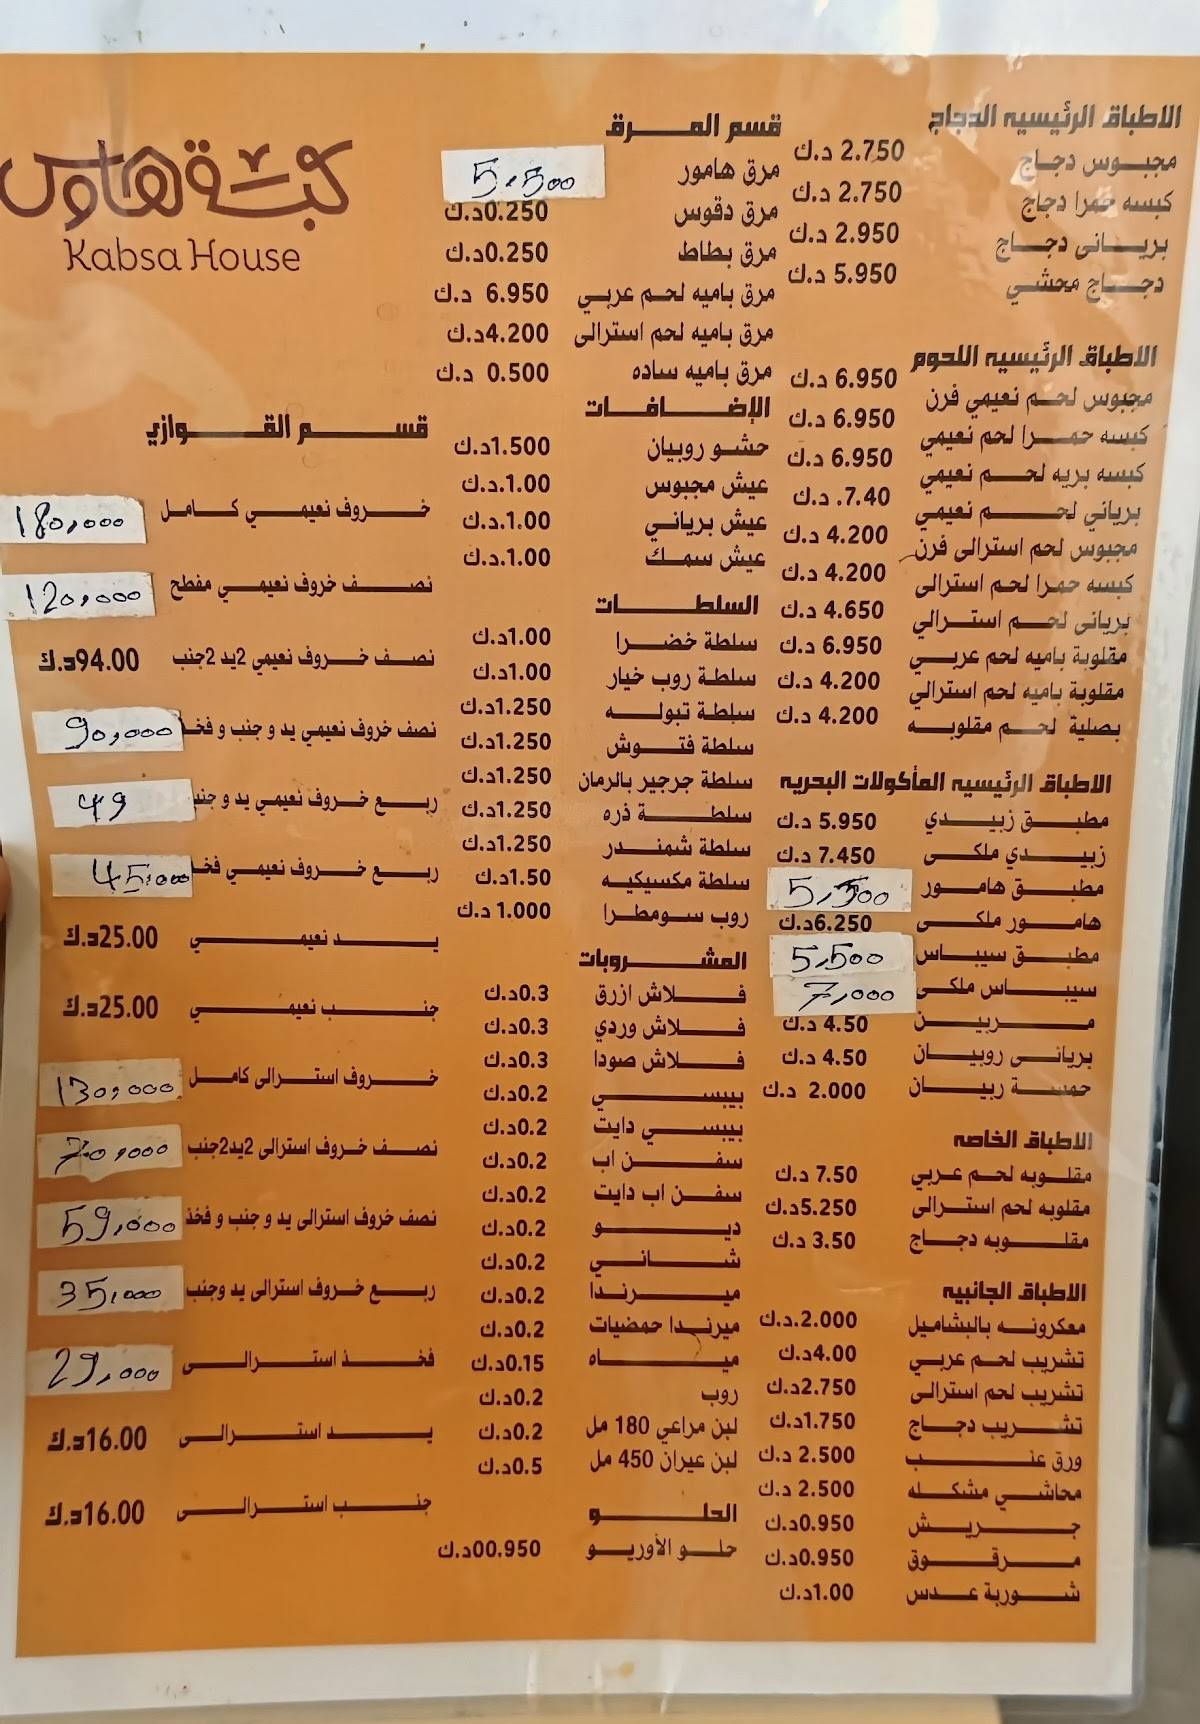 كبسة هاوس
Kabsa House
الاطباق الرئيسيه الدجاج
مجبوس دجاج 2.750 د.ك
كبسه حمرا دجاج 2.750 د.ك
بريانى دجاج 2.950 د.ك
دجاج محشي 5.950 د.ك
الاطباق الرئيسيه اللحوم
مجبوس لحم نعيمي فرن 6.950 د.ك
كبسه حمرا لحم نعيمي 6.950 د.ك
كبسه بريه لحم نعيمي 6.950 د.ك
برياني لحم نعيمي 7.40. د.ك
مجبوس لحم استرالى فرن 4.200 د.ك
كبسه حمرا لحم استرالى 4.200 د.ك
بريانى لحم استرالي 4.650 د.ك
مقلوبة باميه لحم عربي 6.950 د.ك
مقلوبة باميه لحم استرالي 4.200 د.ك
بصلية لحم مقلوبه 4.200 د.ك
الاطباق الرئيسيه المأكولات البحريه
مطبق زبيدي 5.950 د.ك
زبيدي ملكى 7.450 د.ك
مطبق هامور 5,500
هامور ملكى 6.250د.ك
مطبق سيباس 5,500
سيباس ملكى 7,000
مربين 4.50 د.ك
بريانى روبيان 4.50 د.ك
حمسة ربيان 2.000 د.ك
الاطباق الخاصه
مقلوبه لحم عربي 7.50 د.ك
مقلوبه لحم استرالى 5.250د.ك
مقلوبه دجاج 3.50 د.ك
الاطباق الجانبيه
معكرونه بالبشاميل 2.000.د.ك
تشريب لحم عربي 4.00د.ك
تشريب لحم استرالى 2.750د.ك
تشريب دجاج 1.750د.ك
ورق عنب 2.500 د.ك
محاشي مشكله 2.500 د.ك
جريش 0.950د.ك
مرقوق 0.950د.ك
شوربة عدس 1.00د.ك
قسم المرق
مرق هامور 5,500
مرق دقوس 0.250د.ك
مرق بطاط 0.250د.ك
مرق باميه لحم عربي 6.950 د.ك
مرق باميه لحم استرالى 4.200د.ك
مرق باميه ساده 0.500 د.ك
الإضافات
حشو روبيان 1.500د.ك
عيش مجبوس 1.00.د.ك
عيش برياني 1.00.د.ك
عيش سمك 1.00.د.ك
السلطات
سلطة خضرا 1.00د.ك
سلطة روب خيار 1.00د.ك
سلطة تبوله 1.250د.ك
سلطة فتوش 1.250د.ك
سلطة جرجير بالرمان 1.250د.ك
سلطة ذره 1.250د.ك
سلطة شمندر 1.250د.ك
سلطة مكسيكيه 1.50د.ك
روب سومطرا 1.000 د.ك
المشروبات
فلاش ازرق 0.3د.ك
فلاش وردي 0.3د.ك
فلاش صودا 0.3د.ك
بيبسي 0.2د.ك
بيبسي دايت 0.2د.ك
سفن اب 0.2د.ك
سفن اب دايت 0.2د.ك
ديو 0.2د.ك
شاني 0.2د.ك
ميرندا 0.2د.ك
ميرندا حمضيات 0.2د.ك
مياه 0.15د.ك
روب 0.2د.ك
لبن مراعي 180 مل 0.2د.ك
لبن عيران 450 مل 0.5د.ك
الحلو
حلو الأوريو 00.950د.ك
قسم القوازي
خروف نعيمي كامل 180,000
نصف خروف نعيمي مفطح 120,000
نصف خروف نعيمي 2يد 2جنب 94.00د.ك
نصف خروف نعيمي يد و جنب و فخذ 90,000
ربع خروف نعيمي يد و جنب 49
ربع خروف نعيمي فخذ 45,000
يد نعيمي 25.00د.ك
جنب نعيمي 25.00د.ك
خروف استرالى كامل 130,000
نصف خروف استرالى 2يد2جنب 70,000
نصف خروف استرالى يد و جنب و فخذ 59,000
ربع خروف استرالى يد وجنب 35,000
فخذ استرالى 29,000
يد استرالى 16.00د.ك
جنب استرالى 16.00د.ك